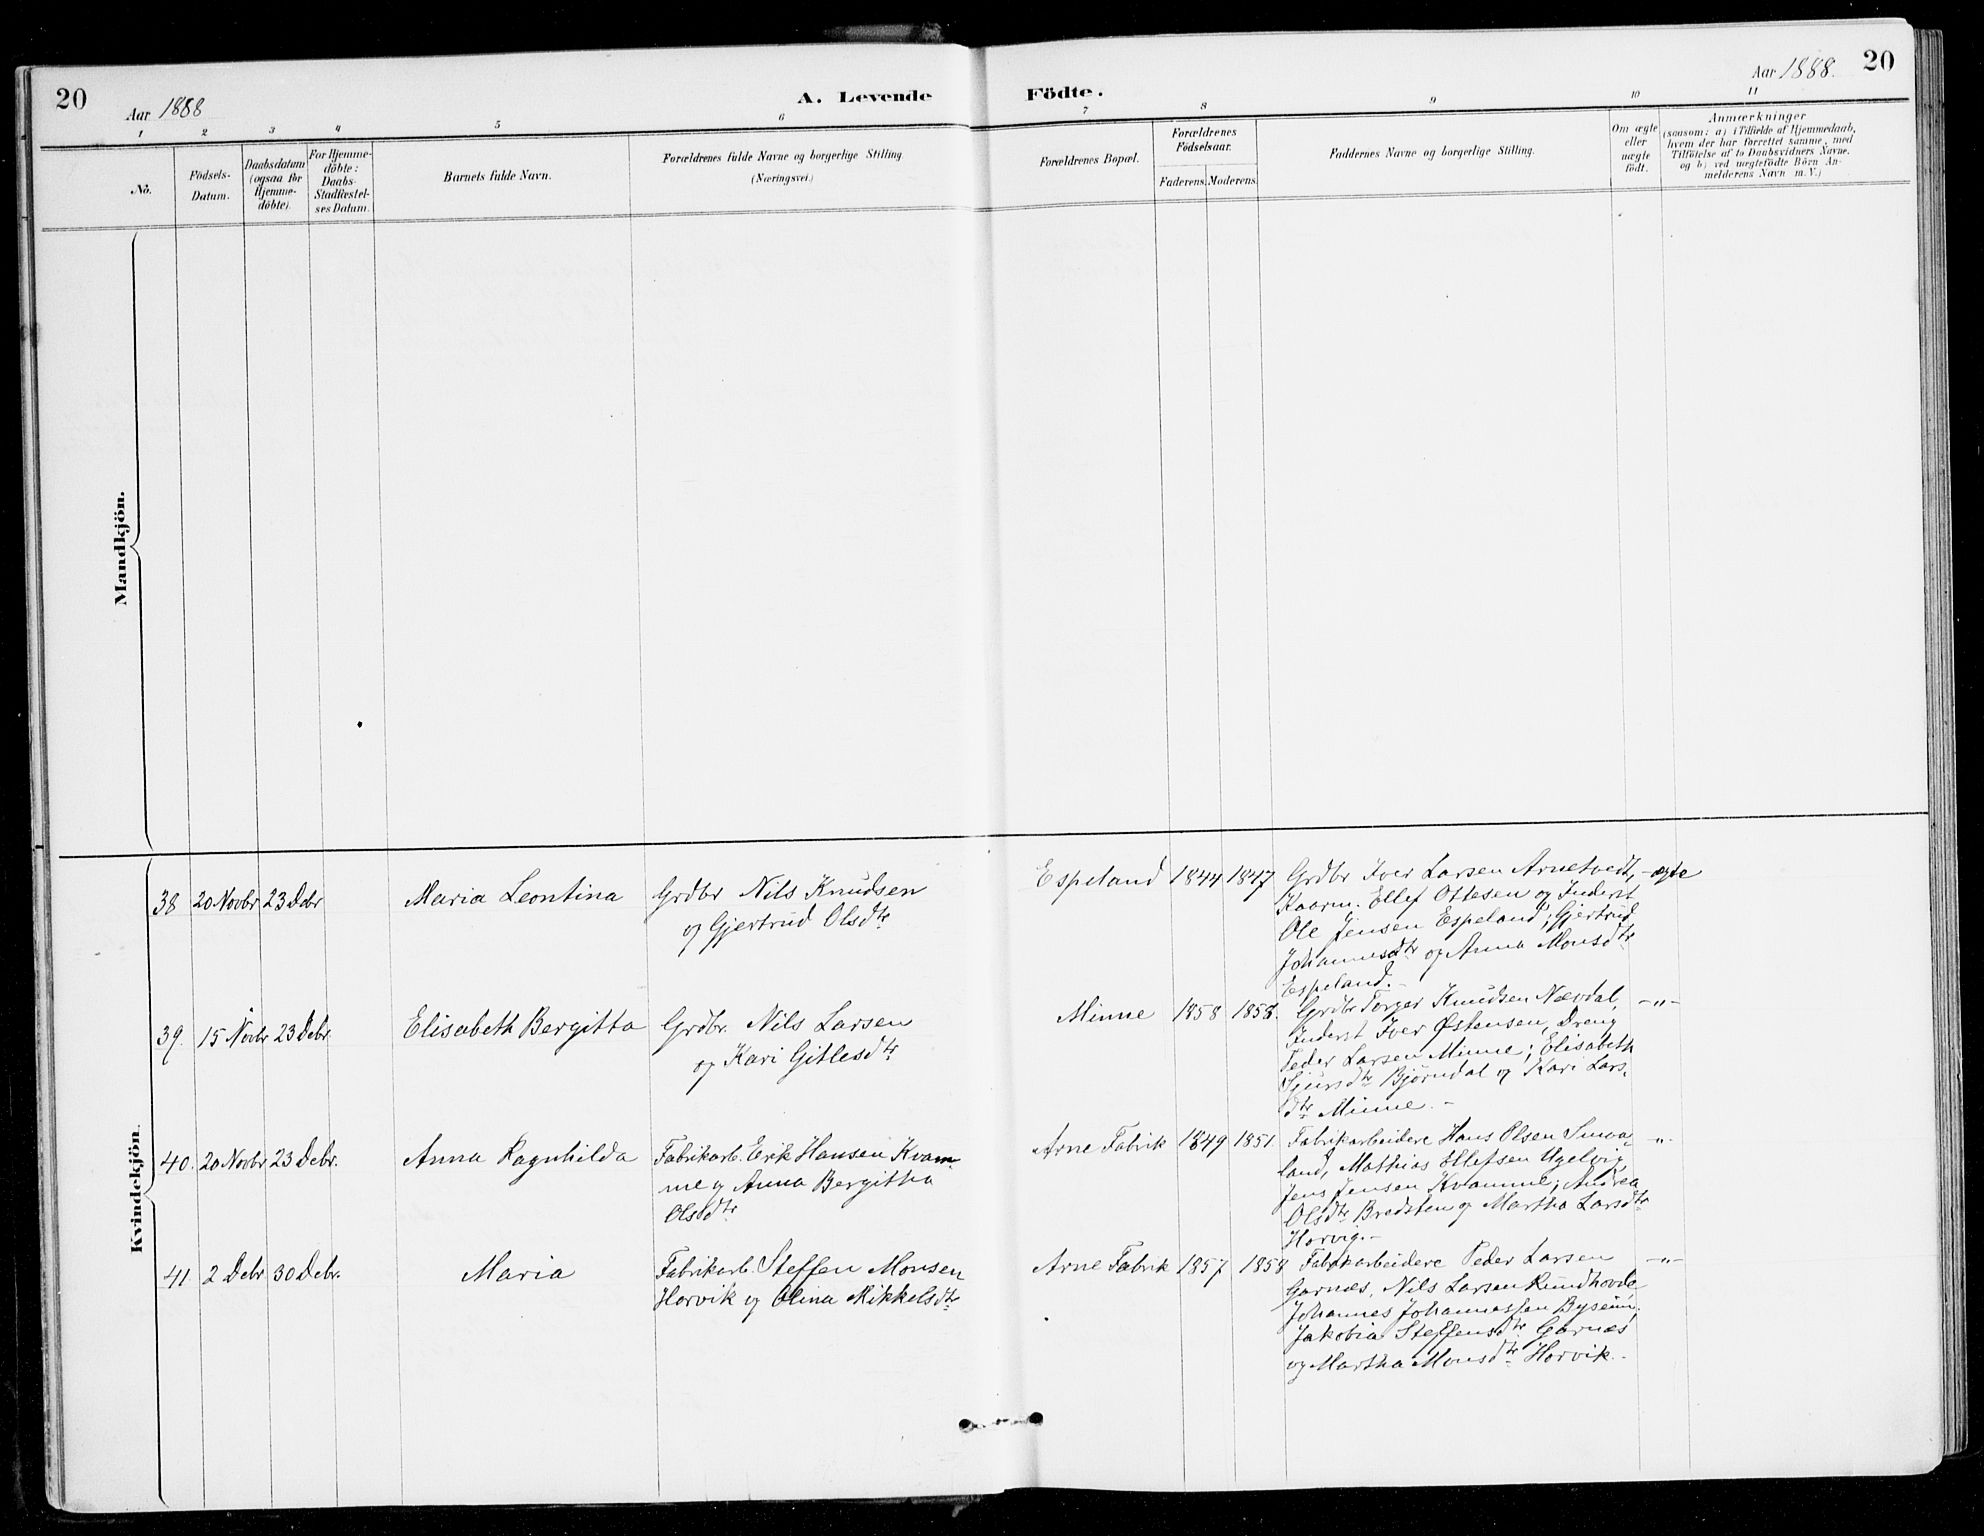 20
Aar 1888
A. Levende
Födte.
Aar 1888.
20
1 2 3 4 5 6 7 8 9 10 11
No.
Födsels-
Datum.
Daabsdatum
(ogsaa for
Hjemme-
döbte).
For Hjemme-
döbte:
Daabs-
Stadfæstel-
ses Datum.
Barnets fulde Navn.
Forældrenes fulde Navne og borgerlige Stilling.
(Næringsvei.)
Forældrenes Bopæl.
Forældrenes
Födselsaar.
Faderens. Moderens.
Faddernes Navne og borgerlige Stilling.
Om ægte
eller
uægte
födt.
Anmærkninger
(saasom: a) i Tilfælde af Hjemmedaab,
hvem der har forrettet samme, med
Tilföielse af to Daabsvidners Navne,
og b) ved uægtefödte Börn An-
melderens Navn m. V.)
Mandkjön.
Kvindekjön.
38 20 Novbr 23 Debr Maria Leontina
Grdbr Nils Knudsen
og Gjertrud Olsdtr
Espeland 1844 1847
Grdbr Iver Larsen Arnetvedt,
Kaarm. Ellef Ottesen og Inderst
Ole Jensen Espeland; Gjertrud
Johannesdtr og Anna Monsdtr
Espeland.-
ægte
39. 15 Novbr 23 Debr. Elisabeth Bergitta
Grdbr. Nils Larsen
og Kari Gitlesdtr
Minne 1858 1858.
Grdbr Torger Knudsen Nævdal,
Inderst Iver Østensen, Dreng
Peder Larsen Minne; Elisabeth
Sjursdtr Bjørndal og Kari Lars-
dtr Minne. -
-"-
40. 20 Novbr 23 Debr. Anna Ragnhilda
Fabrikarb. Erik Hansen Kvam-
me og Anna Bergitha
Olsdtr
Arne Fabrik 1849 1851.
Fabrikarbeidere Hans Olsen Smaa-
land, Mathias Ellefsen Ugelvig,
Jens Jensen Kvamme; Andrea
Olsdtr Bredsten og Martha Larsdtr
Horvig.-
-"-
41 2 Debr 30 Debr. Maria
Fabrikarb. Steffen Monsen
Horvik og Olina Mikkelsdtr
Arne Fabrik 1857 1858
Fabrikarbeidere Peder Larsen
Garnæs, Nils Larsen Rundhovde
Johannes Johannessen Byseim;
Jakobia Steffensdtr Garnæs
og Martha Monsdtr Horvik.-
-"-